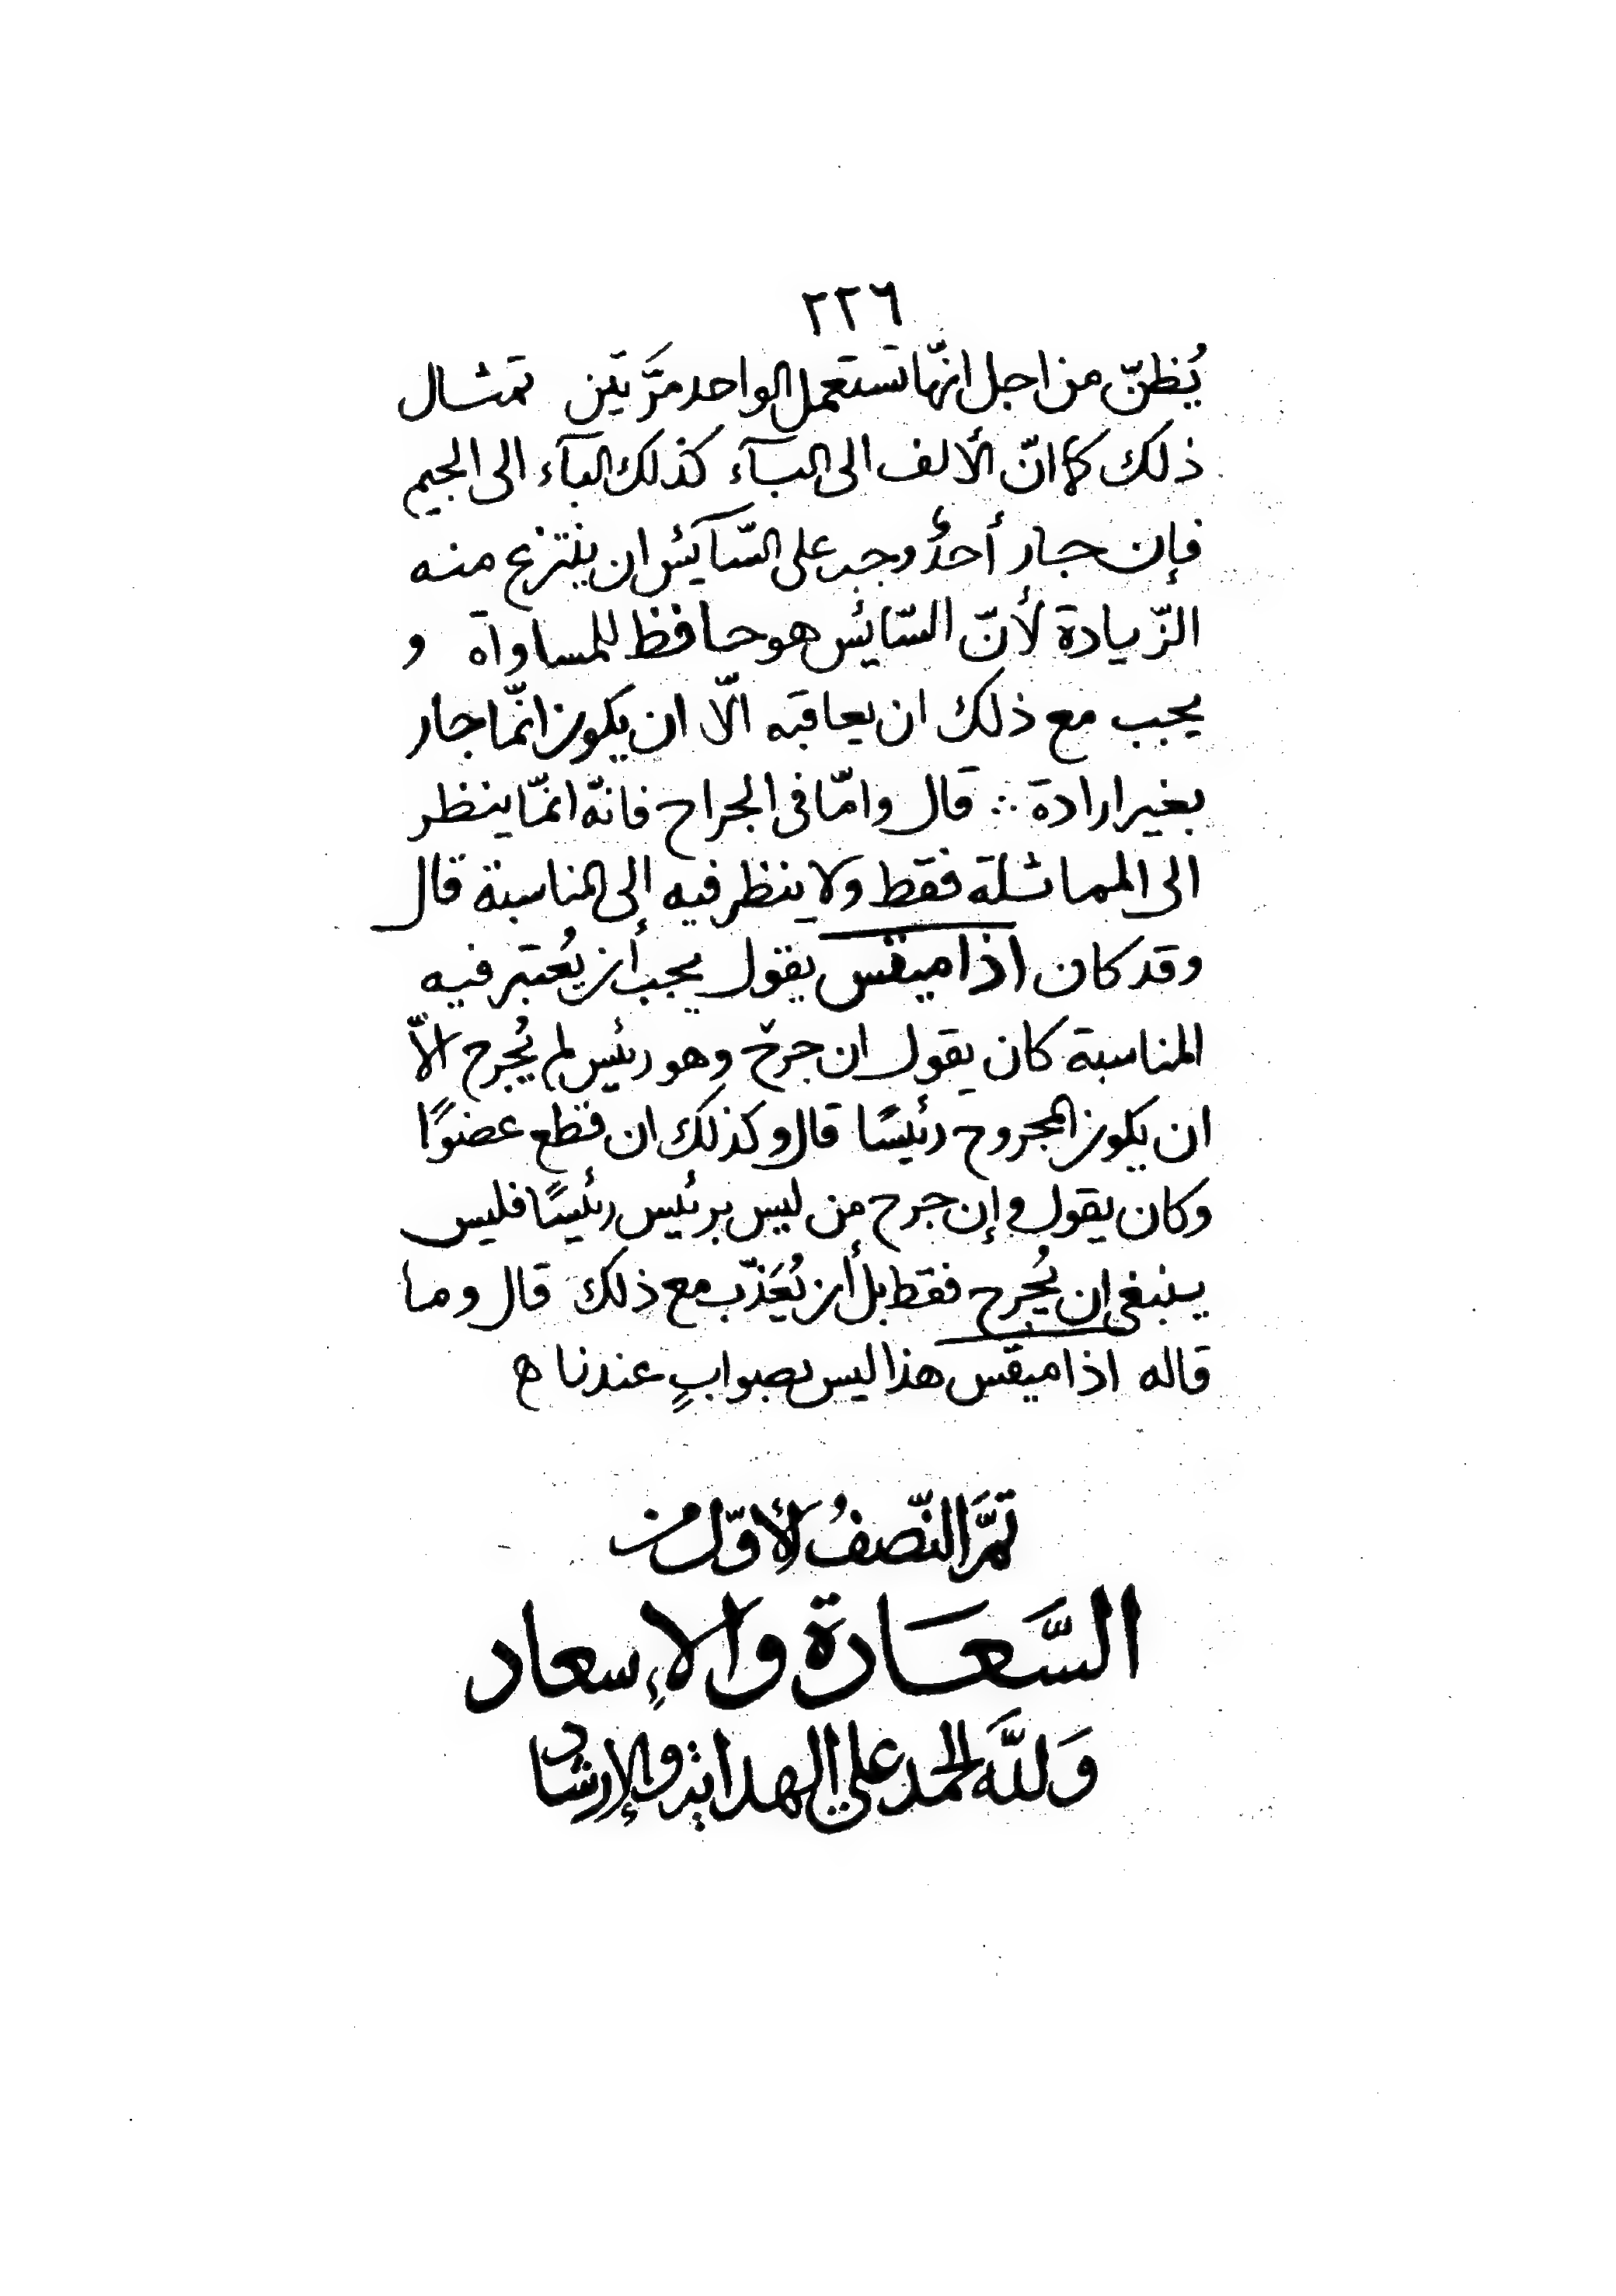 ٢٢٦
يُظنّ من اجل انّها تستعمل الواحد مرَّتين تمثال
ذلك كما انّ الألف الى البآء كذلك البآء الى الجيم
فإن جار أحدٌ وجب على السّآئس ان ينتزع منه
الزّيادة لأنّ السّائس هو حافظ للمساواة و
يجب مع ذلك ان يعاقبه الّا ان يكون انّما جار
بغير ارادة ∴ قال وامّا فى الجراح فانّه انمّا ينظر
الى المماثلة فقط ولا ينظر فيه إلى المناسبة قال
وقد كان اذاميقس يقول يجب أن يُعتبر فيه
المناسبة كان يقول ان جرح وهو رئيس لم يُجرح الاّ
ان يكون المجروح رئيسًا قال وكذلك ان قطع عضوًا
وكان يقول وإن جرح من ليس برئيس رئيسًا فليس
ينبغى ان يُجرح فقط بل أن يُعَذّب مع ذلك قال وما
قاله اذاميقس هذا ليس بصوابٍ عندنا ه
تمَّ النّصفُ الأوّل من
السَّعَادة والإسعاد
وَللّه الحمد علي الهداية والإرشاد